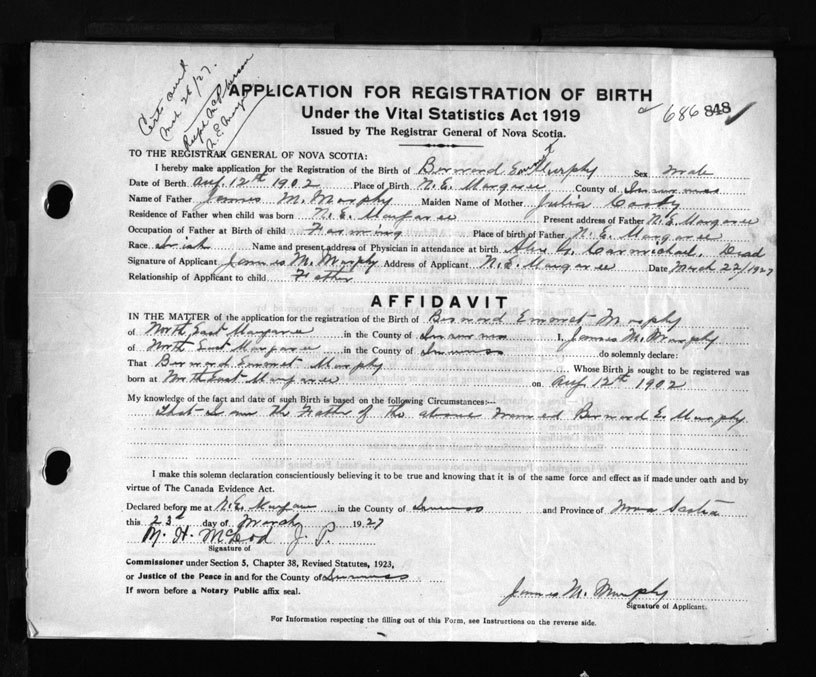 Cert. and
Mch 26/27.
N.E. Marg
APPLICATION FOR REGISTRATION OF BIRTH
686 848
Under the Vital Statistics Act 1919
Issued by The Registrar General of Nova Scotia.
TO THE REGISTRAR GENERAL OF NOVA SCOTIA:
I hereby make application for the Registration of the Birth of Bernard Em Murphy Sex Male
Date of Birth Aug. 12th 1902 Place of Birth N.E. Margaree County of Inverness
Name of Father James M. Murphy Maiden Name of Mother Julia Coady
Residence of Father when child was born N.E. Margaree Present address of Father N.E. Margaree
Occupation of Father at Birth of child Farming Place of birth of Father N.E. Margaree
Race Irish Name and present address of Physician in attendance at birth Alex G. Carmichael, Dead
Signature of Applicant James M. Murphy Address of Applicant N.E. Margaree Date March 22/1927
Relationship of Applicant to child Father
AFFIDAVIT
IN THE MATTER of the application for the registration of the Birth of Bernard Emmet Murphy
of North East Margaree in the County of Inverness I, James M. Murphy
of North East Margaree in the County of Inverness do solemnly declare:
That Bernard Emmet Murphy Whose Birth is sought to be registered was
born at North East Margaree on Aug 12th 1902
My knowledge of the fact and date of such Birth is based on the following Circumstances:—
That I am the Father of the above named Bernard E. Murphy
I make this solemn declaration conscientiously believing it to be true and knowing that it is of the same force and effect as if made under oath and by
virtue of The Canada Evidence Act.
Declared before me at N.E. Margaree in the County of Inverness and Province of Nova Scotia
this 23d day of March 1927
M. H. McLeod J. P.
Signature of
Commissioner under Section 5, Chapter 38, Revised Statutes, 1923,
or Justice of the Peace in and for the County of Inverness
If sworn before a Notary Public affix seal.
James M. Murphy
Signature of Applicant.
For Information respecting the filling out of this Form, see Instructions on the reverse side.